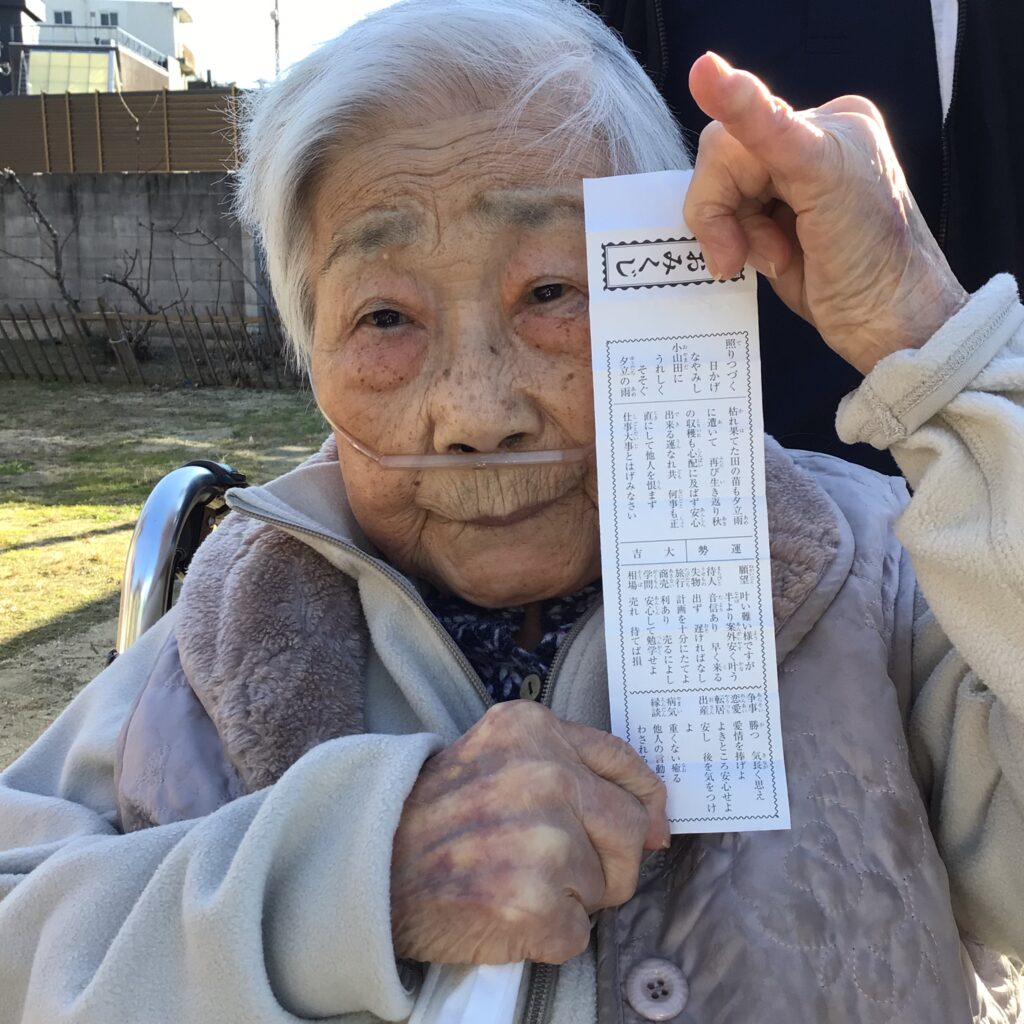 おみくじ
照りつづく
日かげ
なやみし
小山田に
うれしく
そそぐ
夕立の雨
枯れ果てた田の苗も夕立雨
に遭いて 再び生き返り秋
の収穫も心配に及ばず安心
出来る運なれ共 何事も正
直にして他人を恨まず
仕事大事とはげみなさい
運勢 大吉
願望 叶い難い様ですが
半より案外安く叶う
待人 音信あり 早く来る
失物 出ず 遅ければなし
旅行 計画を十分にたてよ
商売 利あり 売るによし
学問 安心して勉学せよ
相場 売れ 待てば損
争事 勝つ 気長く思え
恋愛 愛情を捧げよ
転居 よきところ安心せよ
出産 安し 後を気をつけ
よ
病気 重くない癒る
縁談 他人の言動に
わされ